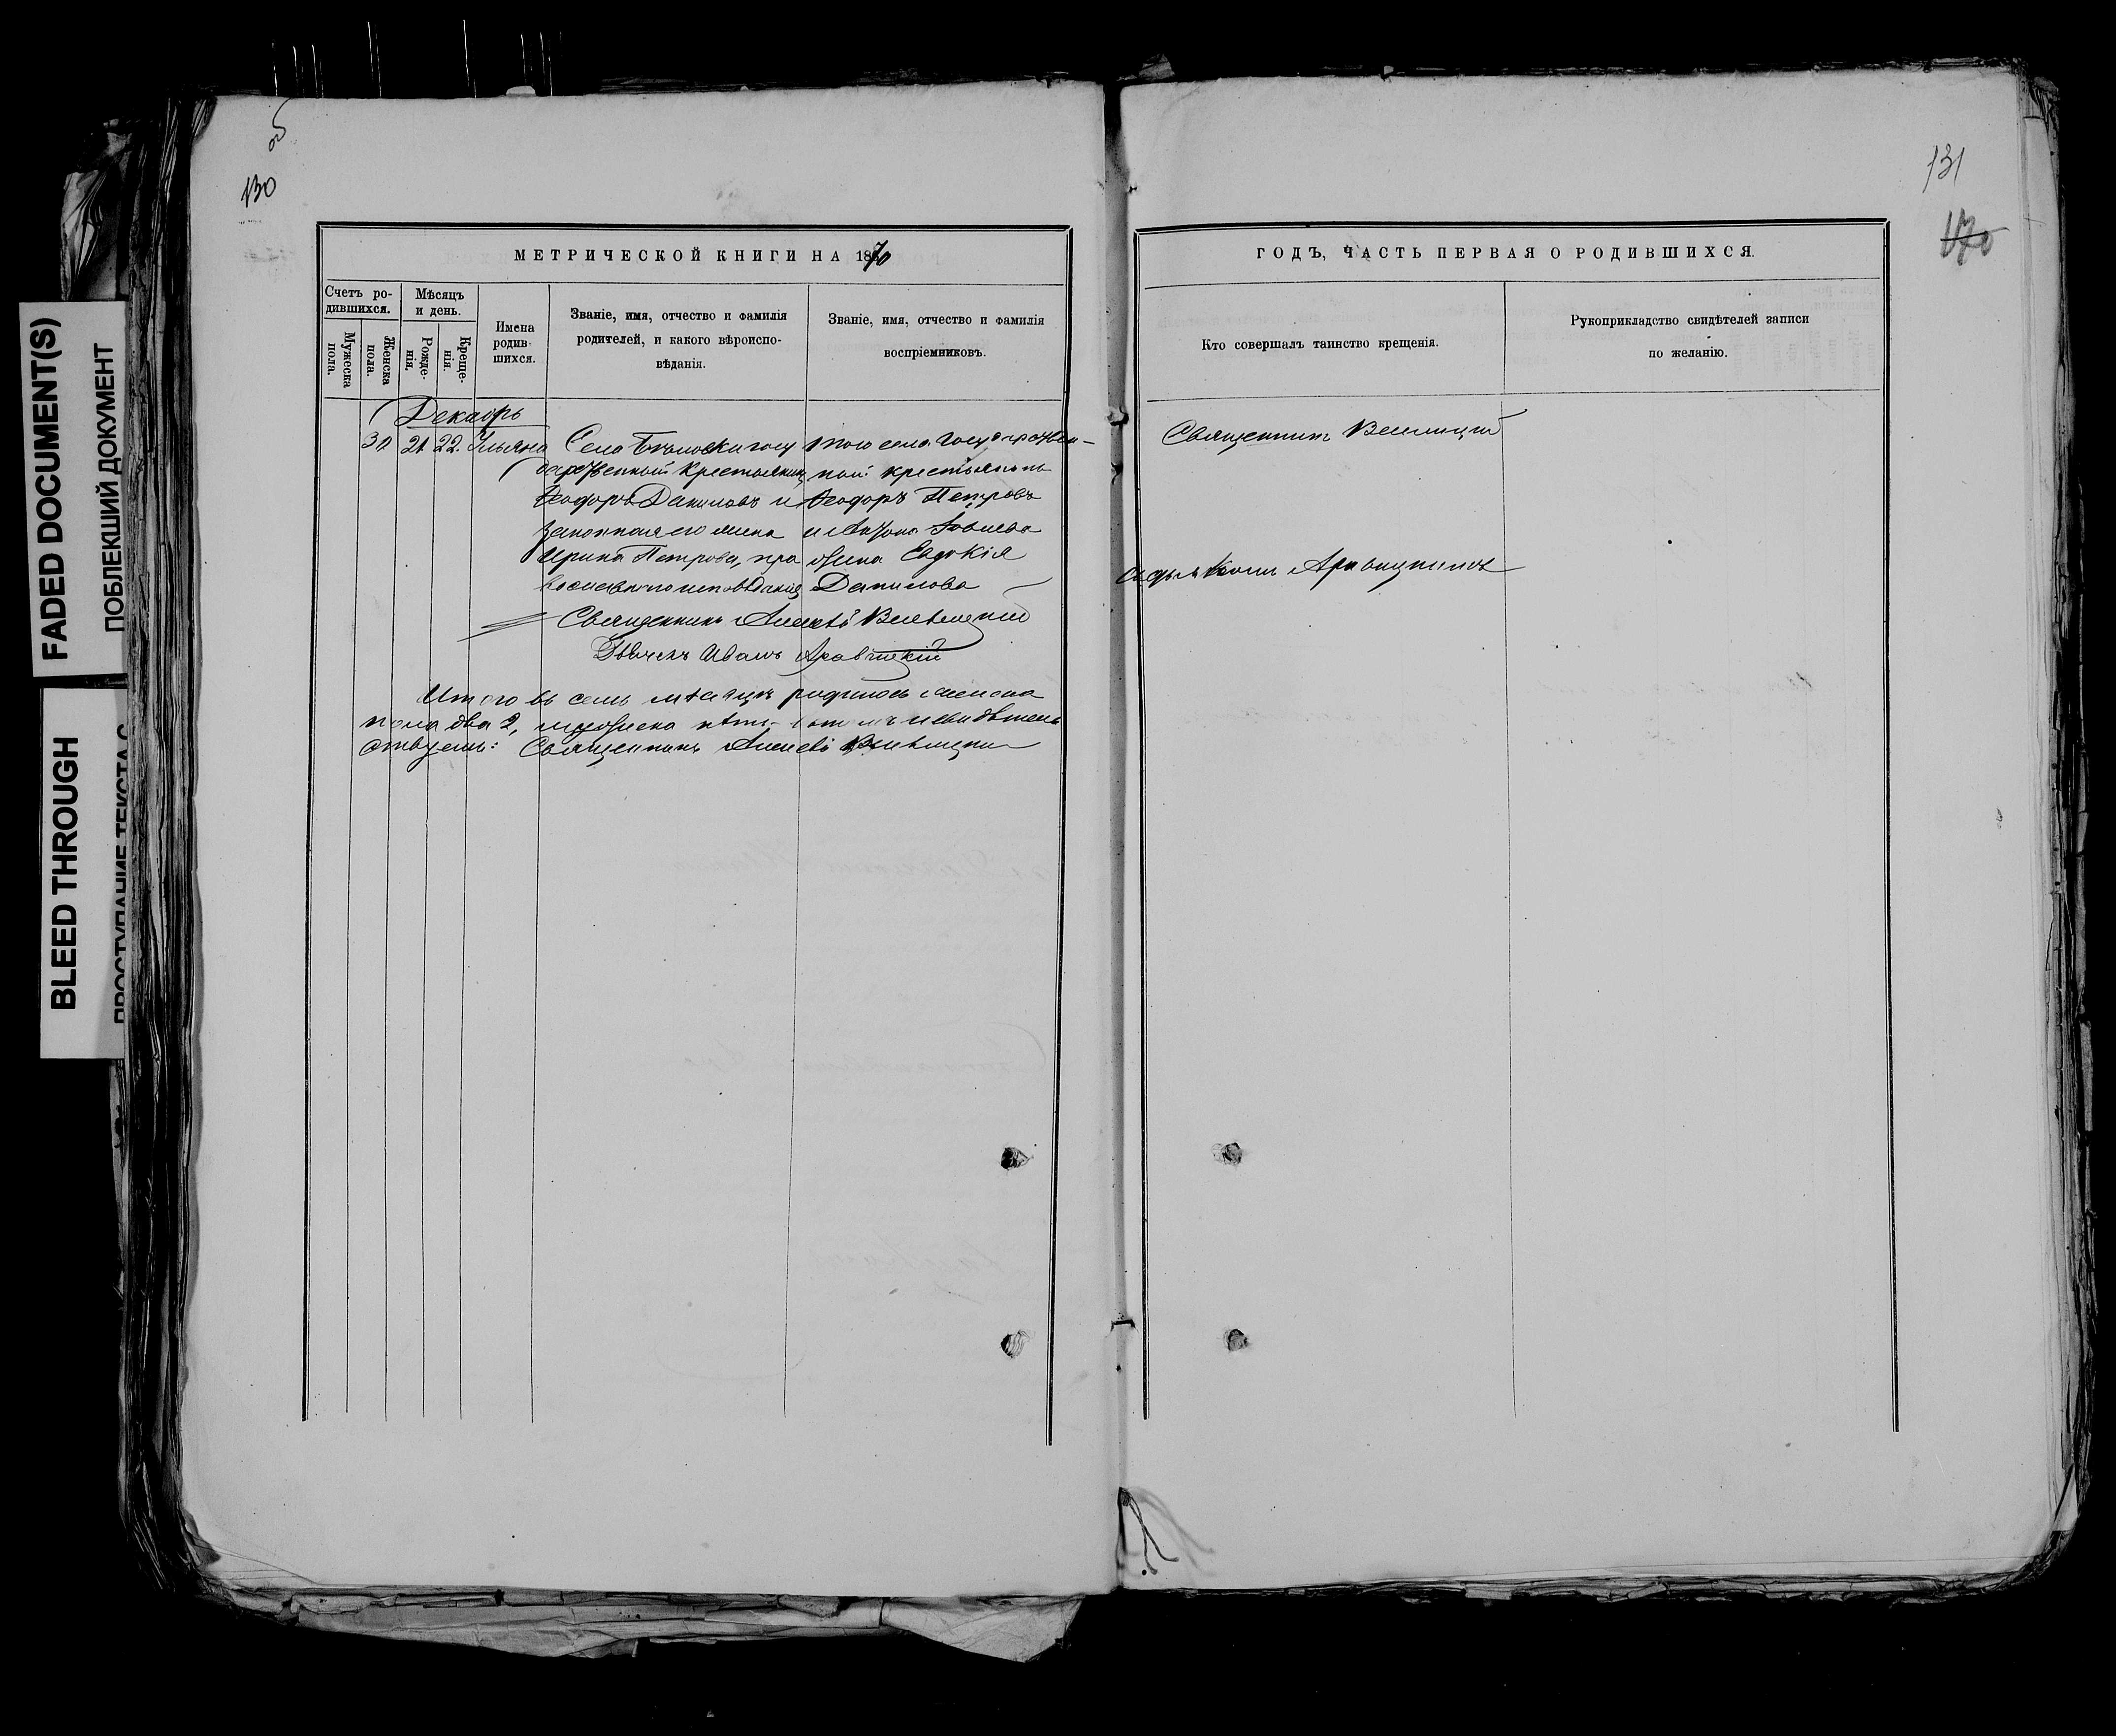 FADED DOCUMENT(S)
ПОБЛЕКШИЙ ДОКУМЕНТ
BLEED THROUGH
ПРОСТУПАНИЕ ТЕКСТА С
об
130
МЕТРИЧЕСКОЙ КНИГИ НА 1870
Счетъ ро-
дившихся.
Мужеска
пола.
Женска
пола.
Мѣсяцъ
и день.
Рожде-
нія.
Креще-
нія.
Имена
родив-
шихся.
Званіе, имя, отчество и фамилія
родителей, и какого вѣроиспо-
вѣданія.
Званіе, имя, отчество и фамилія
воспріемниковъ.
Декабрь
31 21 22. Ульяна
Села госу
дарственный Крестьянинъ
Ѳеодоръ Даниловъ и
законная его жена
Ирина Петрова, пра
вославнаго исповѣданія
того села государствен-
ный крестьянинъ
Ѳеодоръ Петровъ
и жена
Евдокія
Данилова
Священникъ Алексѣй
Иванъ
Итого въ семъ мѣсяцѣ родилось женска
пола два 2, мужеска
Священникъ Алексѣй
131
170
ГОДЪ, ЧАСТЬ ПЕРВАЯ О РОДИВШИХСЯ.
Кто совершалъ таинство крещенія.
Рукоприкладство свидѣтелей записи
по желанію.
Священникъ